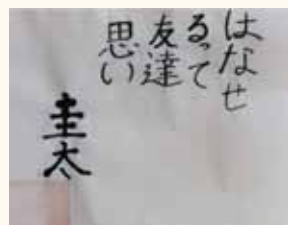 はなせ
るって
友達
思い
圭太